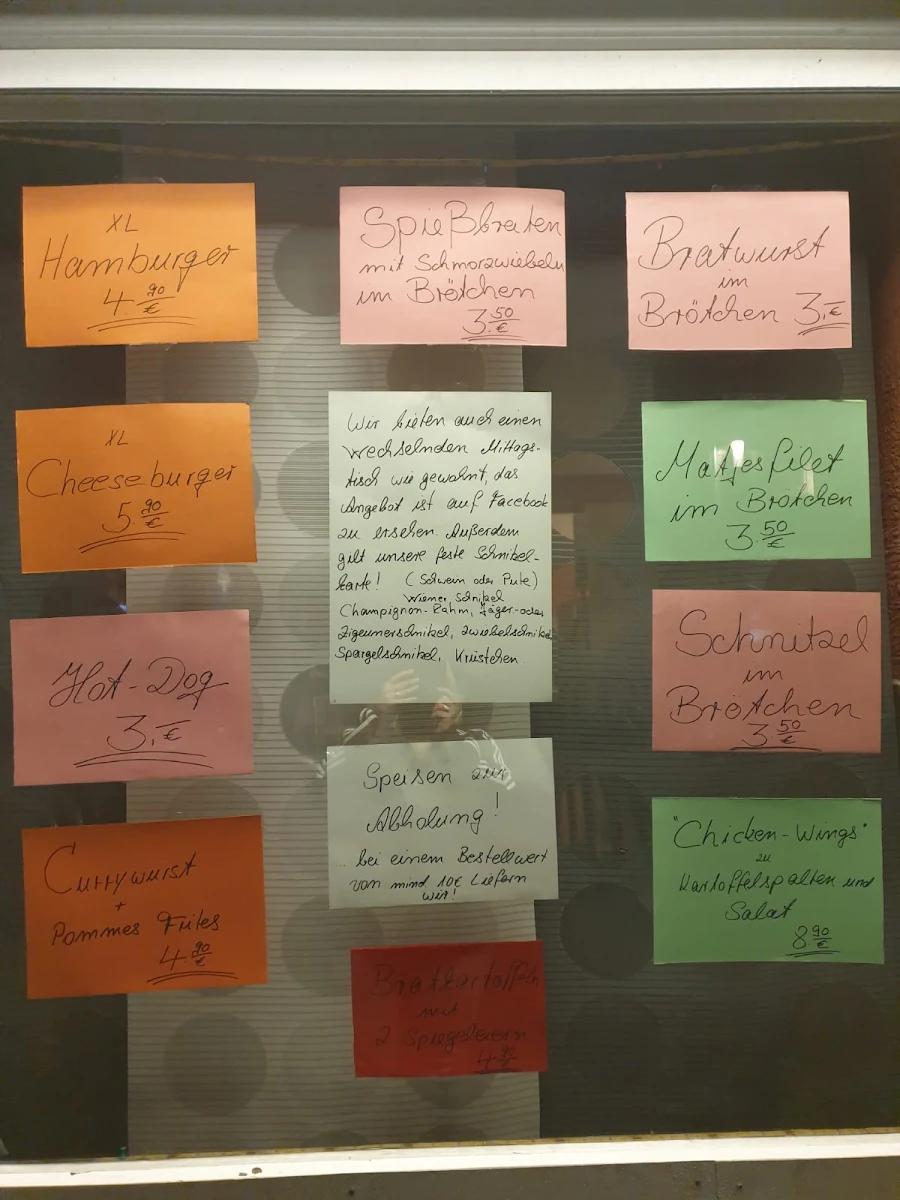 XL
Hamburger
4.90 €
Spießbraten
mit Schmorzwiebeln
im Brötchen
3.50 €
Bratwurst
im
Brötchen 3,- €
XL
Cheeseburger
5.90 €
Wir bieten auch einen
wechselnden Mittags-
tisch wie gewohnt, das
Angebot ist auf Facebook
zu ersehen. Außerdem
gilt unsere feste Schnitzel-
karte! (Schwein oder Pute)
Wiener Schnitzel
Champignon-Rahm, Jäger-oder
Zigeunerschnitzel, Zwiebelschnitzel
Spargelschnitzel, Krüstchen.
Matjesfilet
im Brötchen
3.50 €
Hot-Dog
3,- €
Schnitzel
im
Brötchen
3.50 €
Speisen zur
Abholung!
... bei einem Bestellwert
von mind 10€ Liefern
wir!
Currywurst
+
Pommes Frites
4.90 €
"Chicken-Wings"
zu
Kartoffelspalten und
Salat
8.90 €
Bratkartoffeln
mit
2 Spiegeleiern
4.90 €